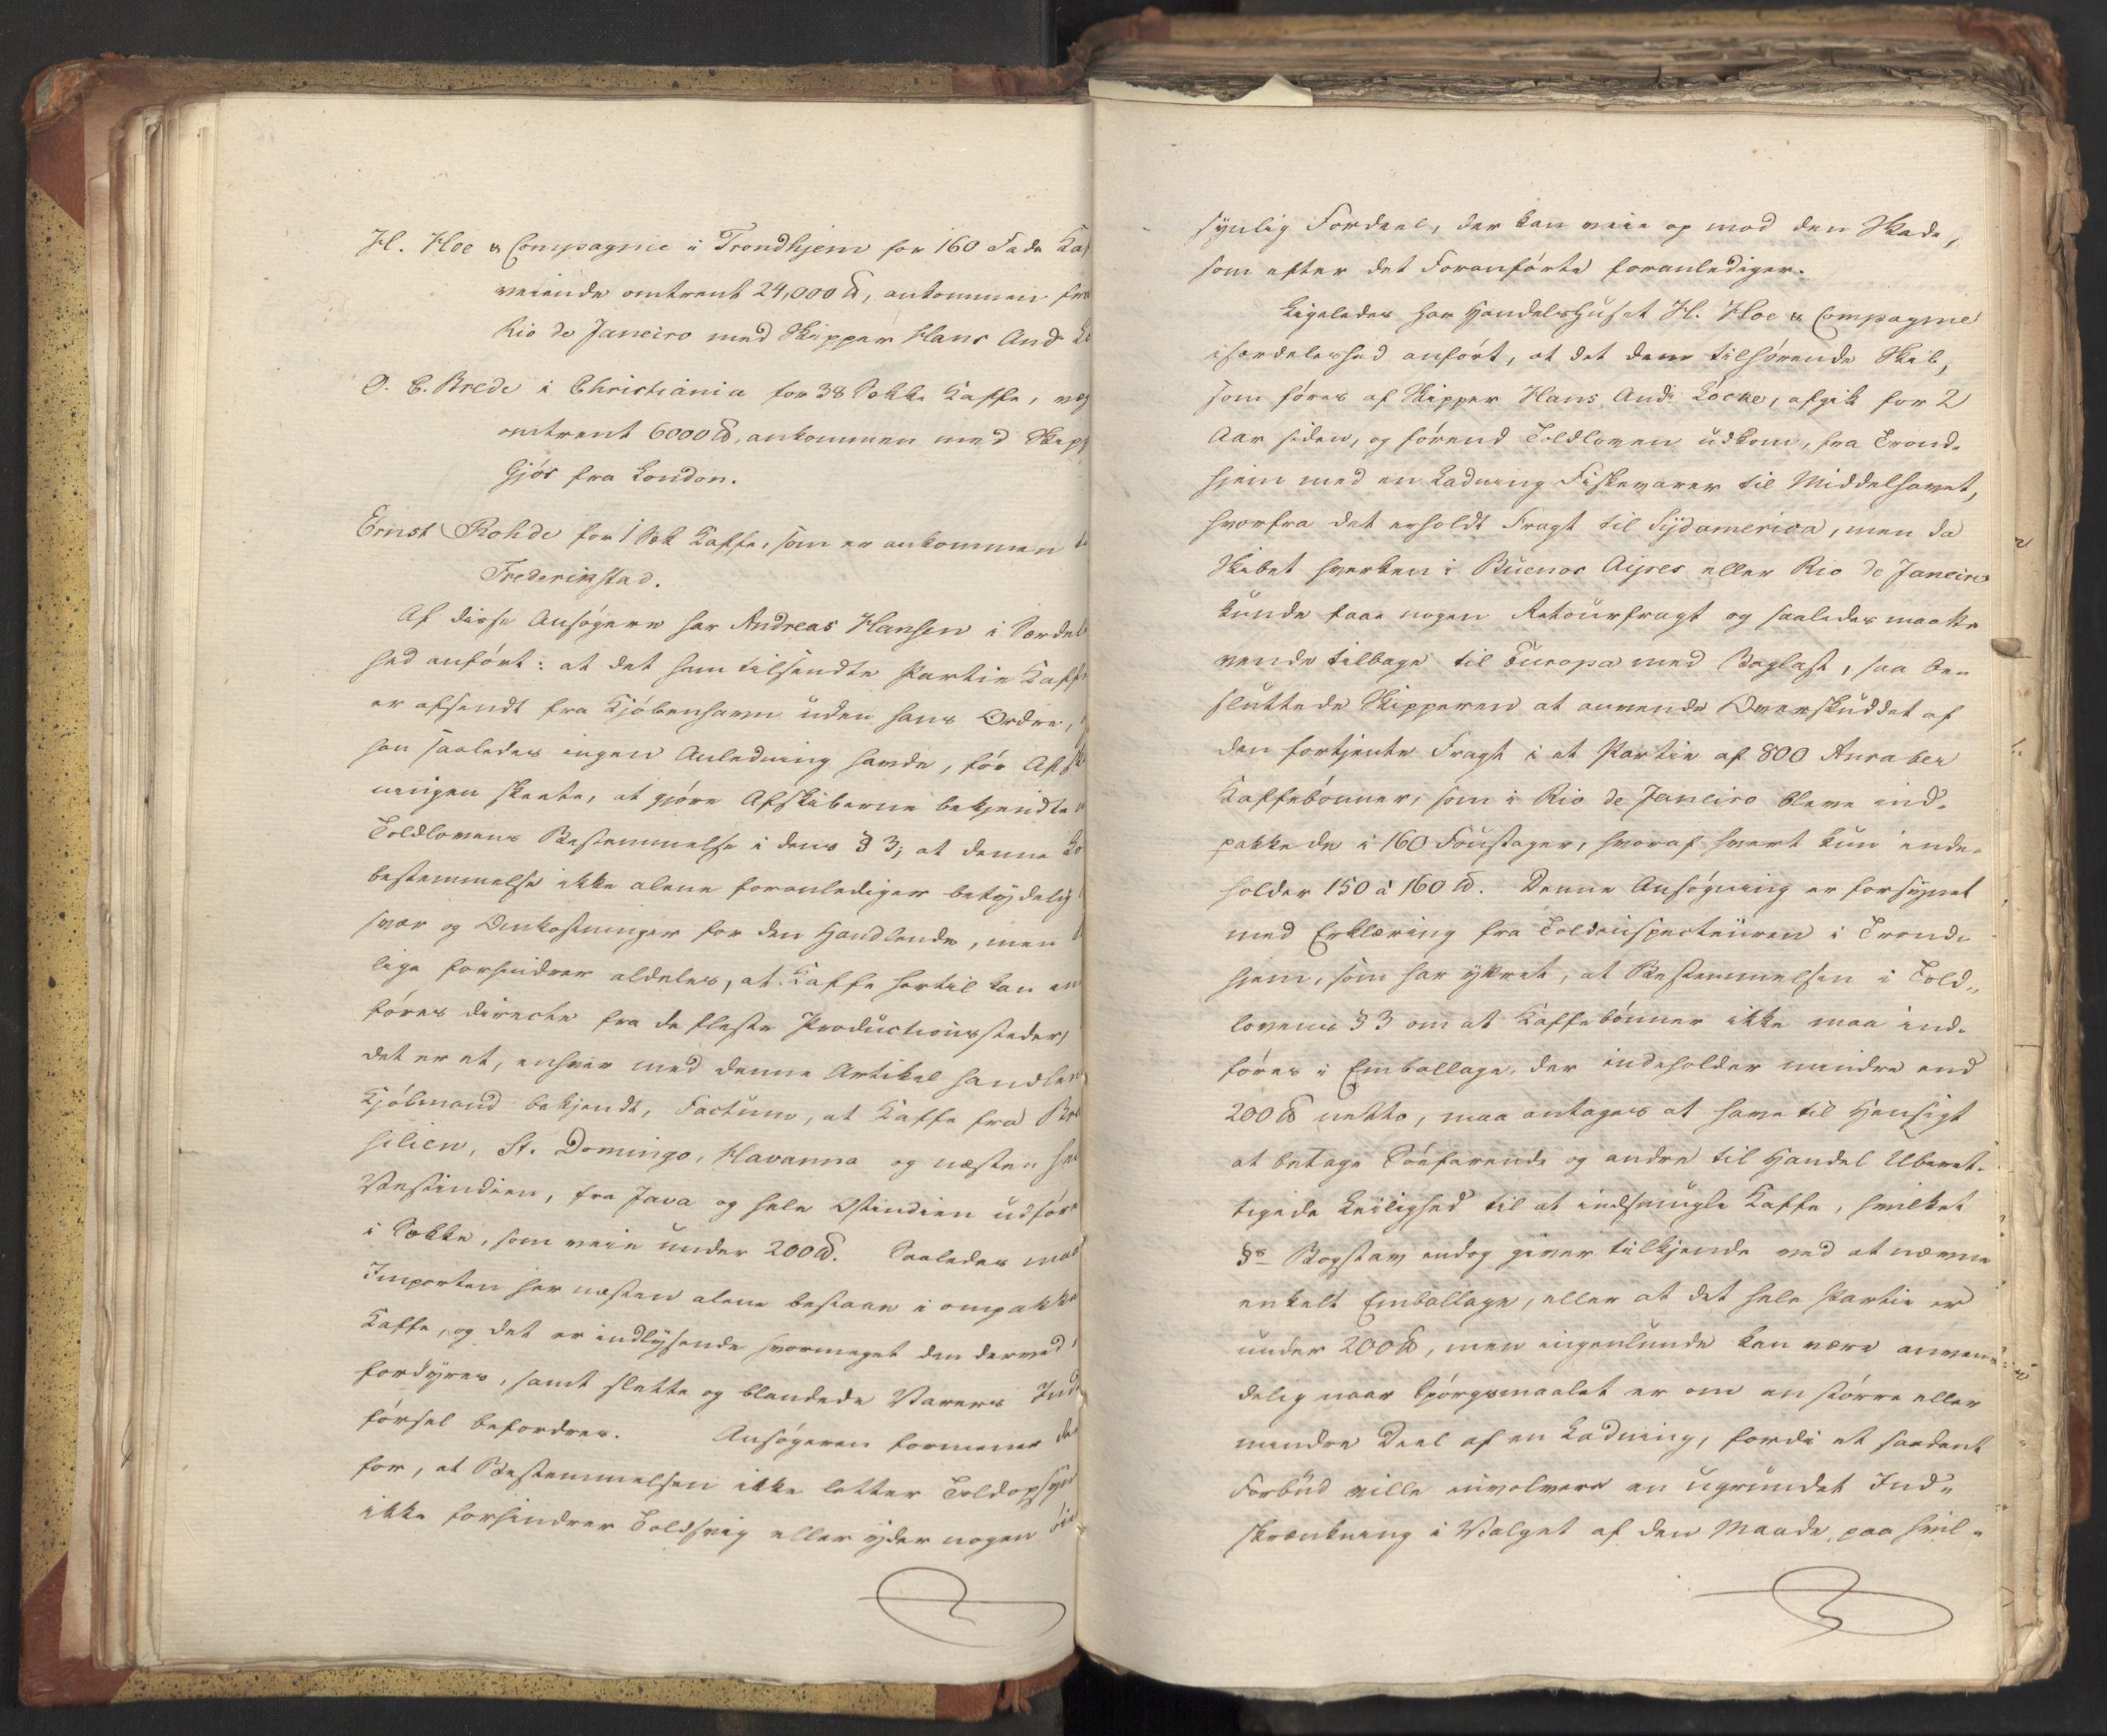 H. Hoe & Compagnie i Trondhjem for 160 Fade Kaf
veiende omtrent 24,000 ℔, ankommen fra
Rio de Janeiro med Skipper Hans And:
O. C. Brede i Christiania for 38 Sække Kaffe, veg
omtrent 6000 ℔, ankommen med Skipp
Gjös fra London.
Ernst Rohde for 1 Sæk Kaffe, som er ankommen
Frederikstad.
Af disse Ansøgere har Andreas Hansen i Særdel
hed anført: at det ham tilsendte Partie Kaffe
er afsendt fra Kjøbenhavn uden hans Ordre,
han saaledes ingen Anledning havde, før Afsk
ningen skeete, at gjøre Afskiberne bekjendte
Toldlovens Bestemmelse i dens § 3; at denne Lo
bestemmelse ikke alene foranlediger betydelig
svær og Omkostninger for den Handlende, men
lige forhindrer aldeles, at Kaffe hertil kan
føres directe fra de fleste Productionssteder,
det er et, enhver med denne Artikel handlen
Kjøbmand bekjendt, Factum, at Kaffe fra Bra
silien, St. Domingo, Havanna og næsten hel
Vestindien, fra Java og hele Ostindien udfør
i Sække, som veie under 200 ℔. Saaledes maa
Importen her næsten alene bestaae i ompakke
Kaffe, og det er indlysende hvormeget den derved
fordyres, samt slette og blandede Varers Ind
førsel befordres. Ansøgeren formener der
for, at Bestemmelsen ikke letter Toldopsyn
ikke forhindrer Toldsvig eller yder nogen øien
synlig Fordeel, der kan veie op mod den Skade,
som efter det Foranførte foranlediges.
Ligeledes har Handelshuset H. Hoe & Compagnie
isærdeleshed anført, at det dem tilhørende Skib,
som føres af Skipper Hans And: Löcke, afgik for 2
Aar siden, og førend Toldloven udkom, fra Trond-
hjem med en Ladning Fiskevarer til Middelhavet,
hvorfra det erholdt Fragt til Sydamerica, men da
Skibet hverken i Buenos Aijres eller Rio de Janeiro
kunde faae nogen Retourfragt og saaledes maatte
vende tilbage til Europa med Baglast, saa be-
sluttede Skipperen at anvende Overskuddet af
den fortjente Fragt i et Partie af 800 Arraber
Kaffebønner, som i Rio de Janeiro bleve ind-
pakkede i 160 Foustager, hvoraf hvert kun inde-
holder 150 à 160 ℔. Denne Ansøgning er forsynet
med Erklæring fra Toldinspecteuren i Trond-
hjem, som har yttret, at Bestemmelsen i Told-
lovens § 3 om at Kaffebønner ikke maa ind-
føres i Emballage, der indeholder mindre end
200 ℔ netto, maa antages at have til Hensigt
at betage Søefarende og andre til Handel Uberet-
tigede Leilighed til at indsmugle Kaffe, hvilket
§s Bogstav endog giver tilkjende ved at nævne
enkelt Emballage, eller at det hele Partie er
under 200 ℔, men ingenlunde kan være anven-
delig naar Spørgsmaalet er om en større eller
mindre Deel af en Ladning, fordi et saadant
Forbud ville involvere en ugrundet Ind-
skrænkning i Valget af den Maade, paa hvil-